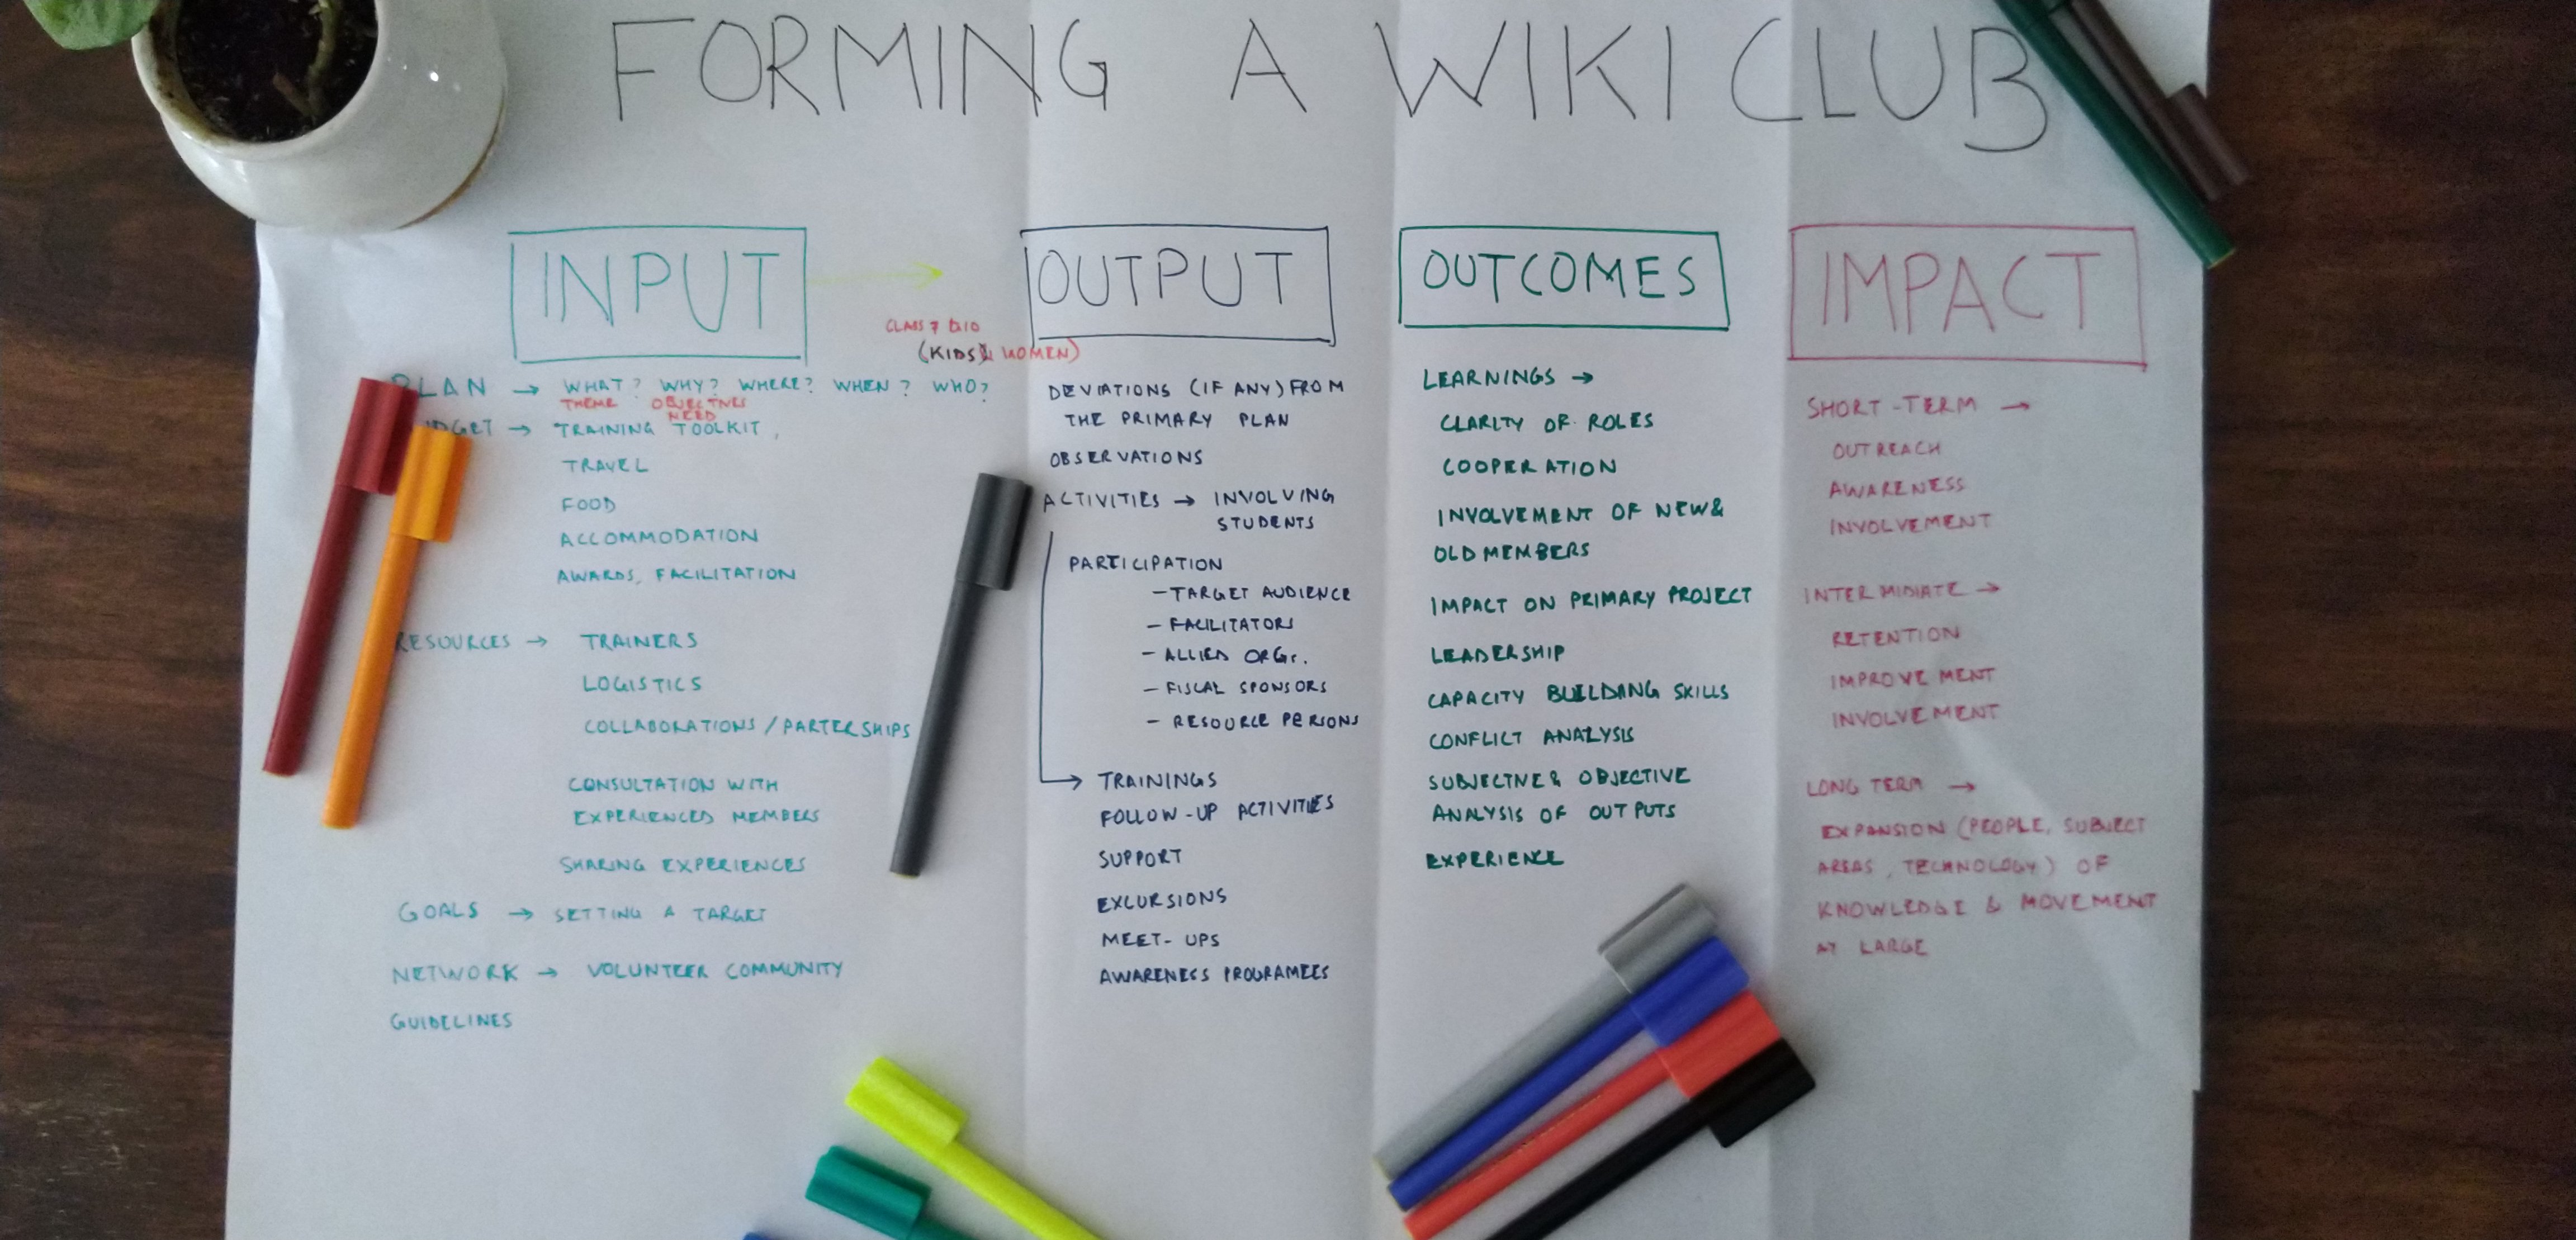 FORMING A WIKI CLUB
INPUT
CLASS 7 to 10
(KIDS & WOMEN)
PLAN → WHAT? WHY? WHERE? WHEN? WHO?
THEME OBJECTIVES
NEED
BUDGET → TRAINING TOOLKIT,
TRAVEL
FOOD
ACCOMMODATION
AWARDS, FACILITATION
RESOURCES → TRAINERS
LOGISTICS
COLLABORATIONS / PARTERSHIPS
CONSULTATION WITH
EXPERIENCED MEMBERS
SHARING EXPERIENCES
GOALS → SETTING A TARGET
NETWORK → VOLUNTEER COMMUNITY
GUIDELINES
OUTPUT
DEVIATIONS (IF ANY) FROM
THE PRIMARY PLAN
OBSERVATIONS
ACTIVITIES → INVOLVING
STUDENTS
PARTICIPATION
- TARGET AUDIENCE
- FACILITATORS
- ALLIED ORGs.
- FISCAL SPONSORS
- RESOURCE PERSONS
→ TRAININGS
FOLLOW-UP ACTIVITIES
SUPPORT
EXCURSIONS
MEET-UPS
AWARENESS PROGRAMEES
OUTCOMES
LEARNINGS →
CLARITY OF ROLES
COOPERATION
INVOLVEMENT OF NEW &
OLD MEMBERS
IMPACT ON PRIMARY PROJECT
LEADERSHIP
CAPACITY BUILDING SKILLS
CONFLICT ANALYSIS
SUBJECTIVE & OBJECTIVE
ANALYSIS OF OUTPUTS
EXPERIENCE
IMPACT
SHORT-TERM →
OUTREACH
AWARENESS
INVOLVEMENT
INTERMIDIATE →
RETENTION
IMPROVEMENT
INVOLVEMENT
LONG TERM →
EXPANSION (PEOPLE, SUBJECT
AREAS, TECHNOLOGY) OF
KNOWLEDGE & MOVEMENT
AT LARGE